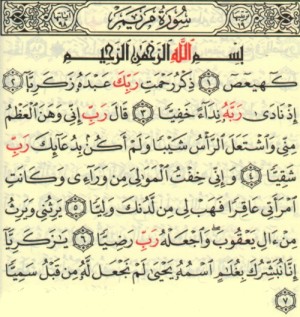 سُورَةُ مَرْيَمَ
بِسْمِ اللَّهِ الرَّحْمَٰنِ الرَّحِيمِ
كٓهيعٓصٓ ١ ذِكْرُ رَحْمَتِ رَبِّكَ عَبْدَهُۥ زَكَرِيَّآ ٢
إِذْ نَادَىٰ رَبَّهُۥ نِدَآءً خَفِيًّا ٣ قَالَ رَبِّ إِنِّى وَهَنَ ٱلْعَظْمُ
مِنِّى وَٱشْتَعَلَ ٱلرَّأْسُ شَيْبًا وَلَمْ أَكُنۢ بِدُعَآئِكَ رَبِّ
شَقِيًّا ٤ وَإِنِّى خِفْتُ ٱلْمَوَٰلِىَ مِن وَرَآءِى وَكَانَتِ
ٱمْرَأَتِى عَاقِرًا فَهَبْ لِى مِن لَّدُنكَ وَلِيًّا ٥ يَرِثُنِى وَيَرِثُ
مِنْ ءَالِ يَعْقُوبَ ۖ وَٱجْعَلْهُ رَبِّ رَضِيًّا ٦ يَٰزَكَرِيَّآ
إِنَّا نُبَشِّرُكَ بِغُلَٰمٍ ٱسْمُهُۥ يَحْيَىٰ لَمْ نَجْعَل لَّهُۥ مِن قَبْلُ سَمِيًّا
٧